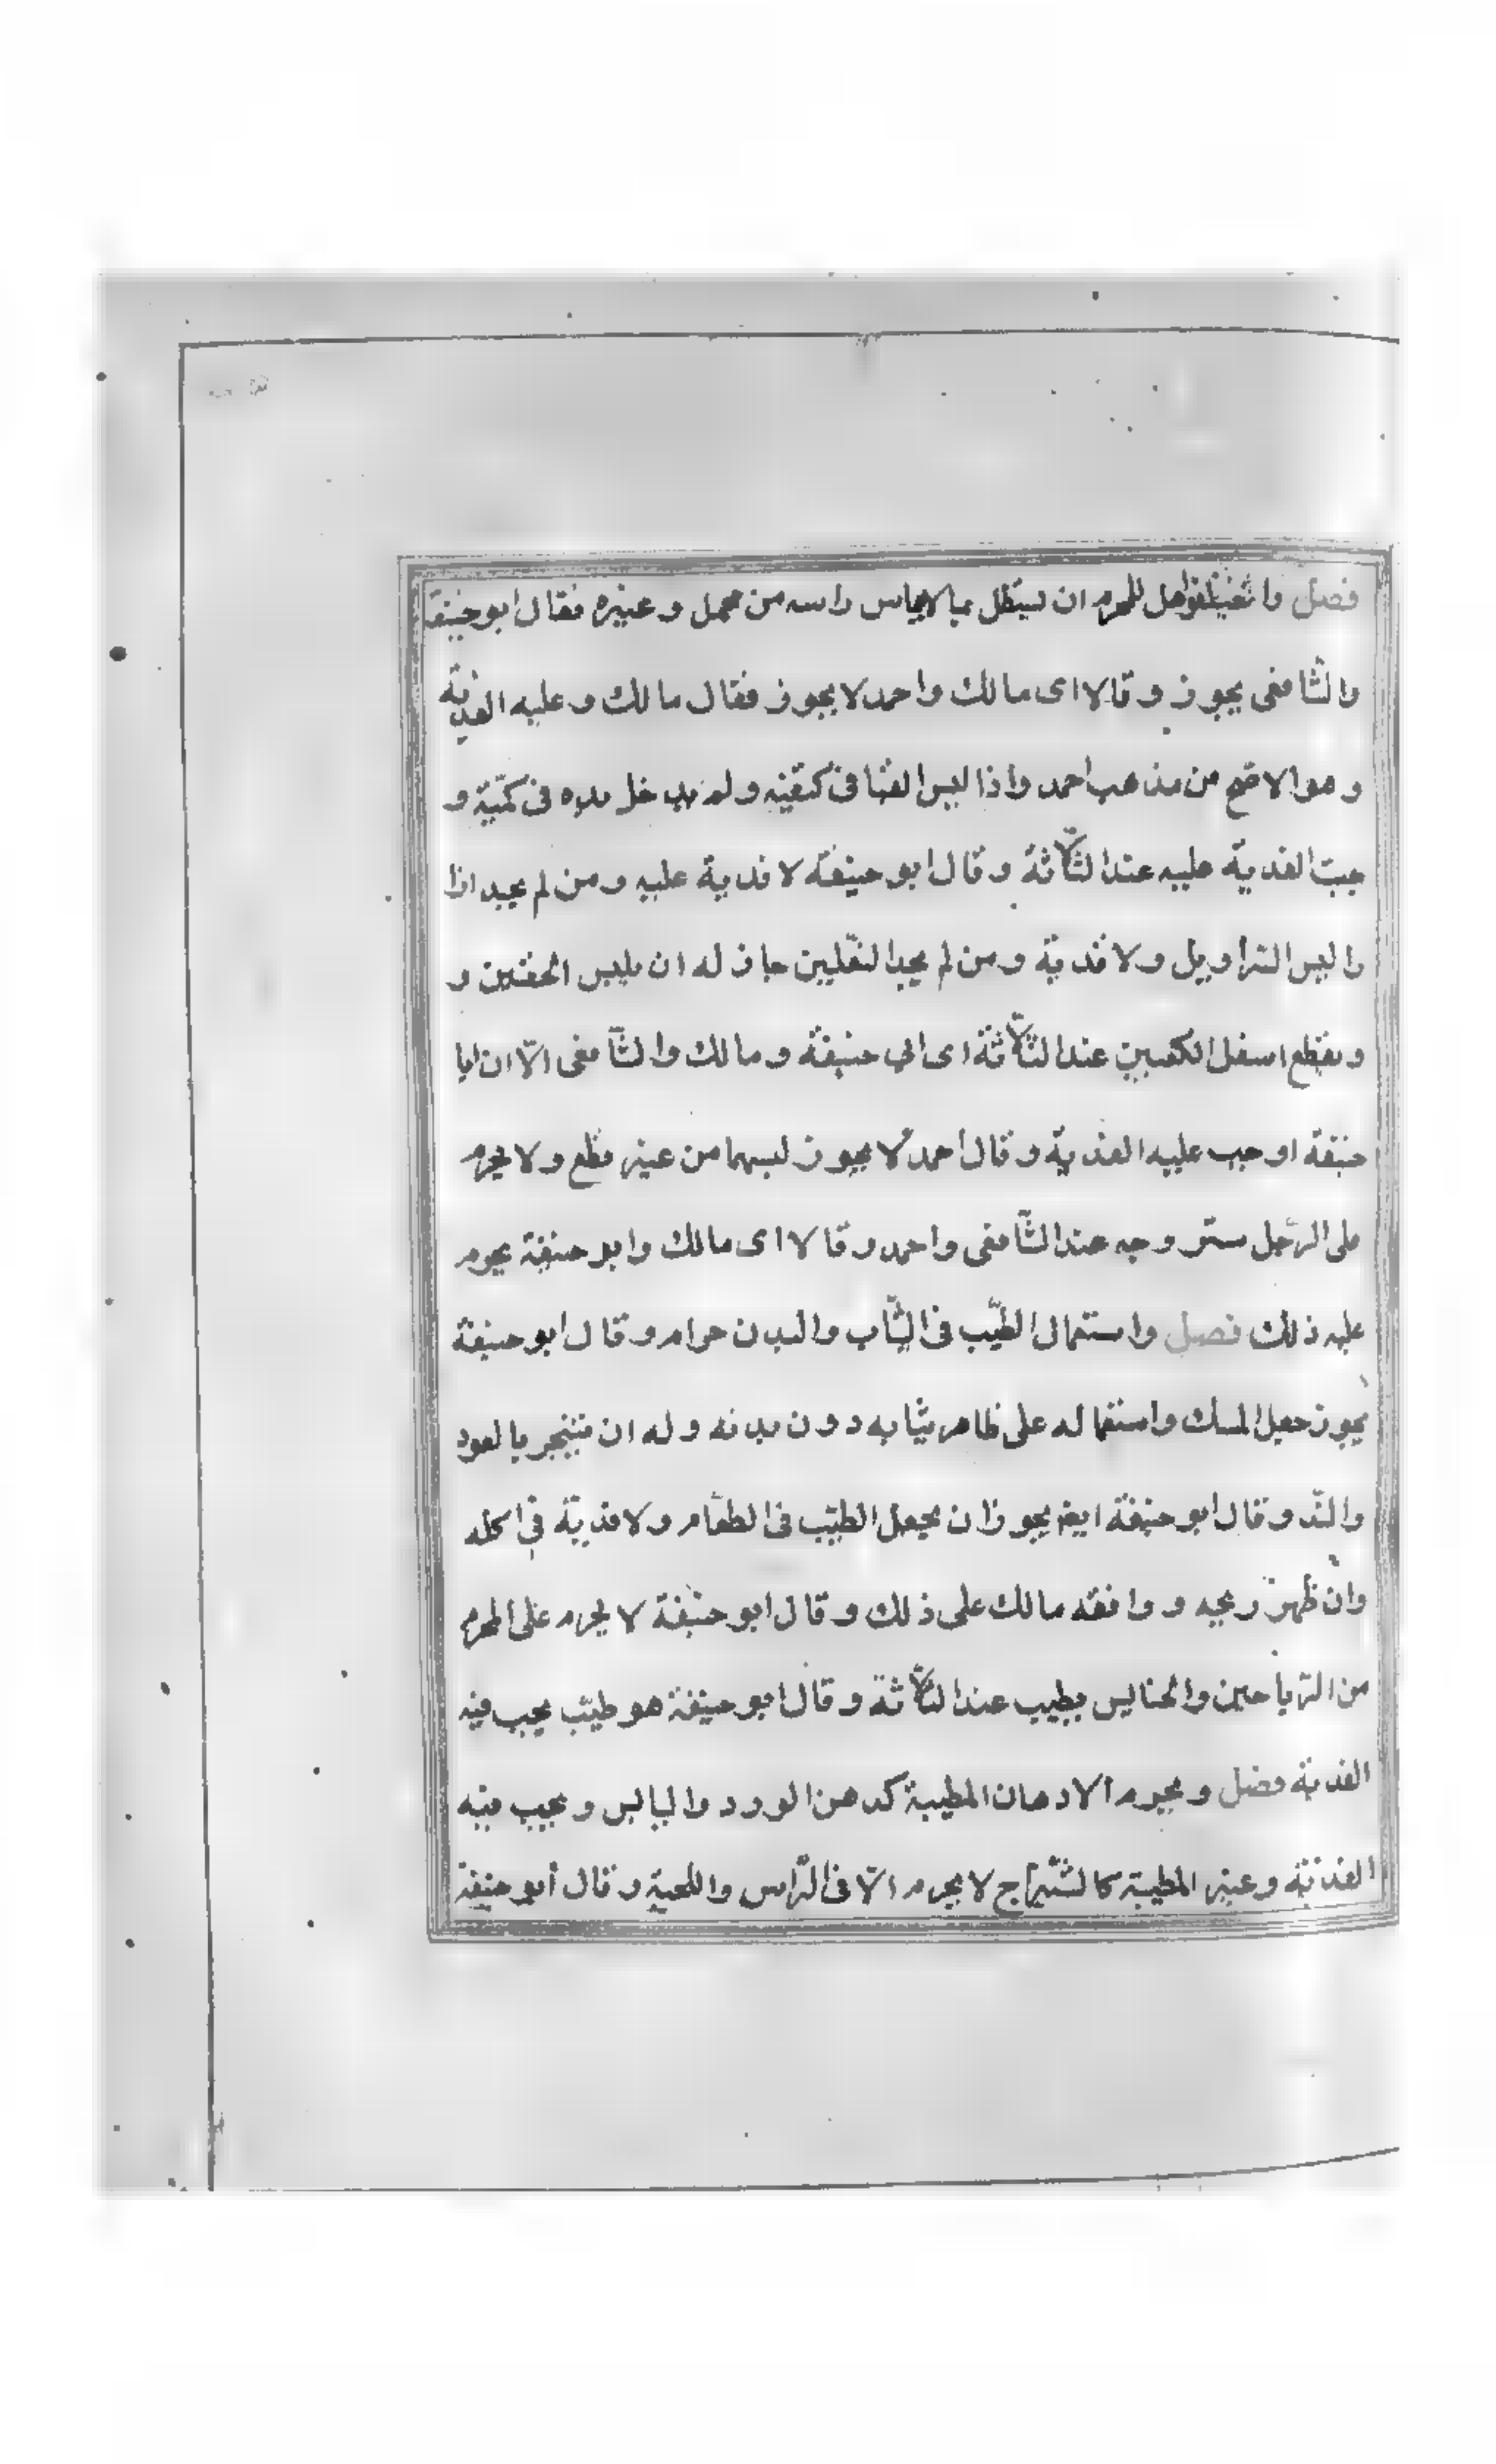 فصل واختلفوا هل للمحرم ان يستظل بما لا يماس راسه من محمل وغيره فقال ابو حنيفة
والشافعى يجوز وقالا اى مالك واحمد لا يجوز فقال مالك وعليه الفدية
وهو الاصح من مذهب احمد واذا لبس القبا فى كتفيه ولم يدخل يده فى كمّيه و
جبت الفدية عليه عند الثلاثة وقال ابو حنيفة لا فدية عليه ومن لم يجد ازا
را لبس السّراويل ولا فدية ومن لم يجد النعلين جاز له ان يلبس الخفين و
ويقطع اسفل الكعبين عند الثلاثة اى ابى حنيفة ومالك والشّافعى الّا ان ابا
حنيفة اوجب عليه الفدية وقال احمد لا يجوز لبسهما من غير قطع ولا يحرم
على الرّجل ستر وجه عند الشّافعى واحمد وقالا اى مالك وابو حنيفة يحرم
عليه ذلك فصل واستعمال الطّيب فى الثّياب والبدن حرام وقال ابو حنيفة
يجوز جعل المسك واستعماله على ظاهر ثيابه دون بدنه وله ان يتبخر بالعود
والنّد وقال ابو حنيفة ايضا يجوز ان يجعل الطيّب فى الطعام ولا فديّة فى اكله
وان ظهر ريحه ووافقه مالك على ذلك وقال ابو حنيفة لا يحرم على المحرم
من الرّياحين والحنا ليس بطيب عند الثلاثة وقال ابو حنيفة هو طيّب يجب فيه
الفدية فصل ويحرم الادهان المطيبة كدهن الورد والياس ويجب فيه
الفدية وغير المطيبة كالشّيرج لا يحرم الّا فى الرّاس واللحية وقال أبو حنيفة